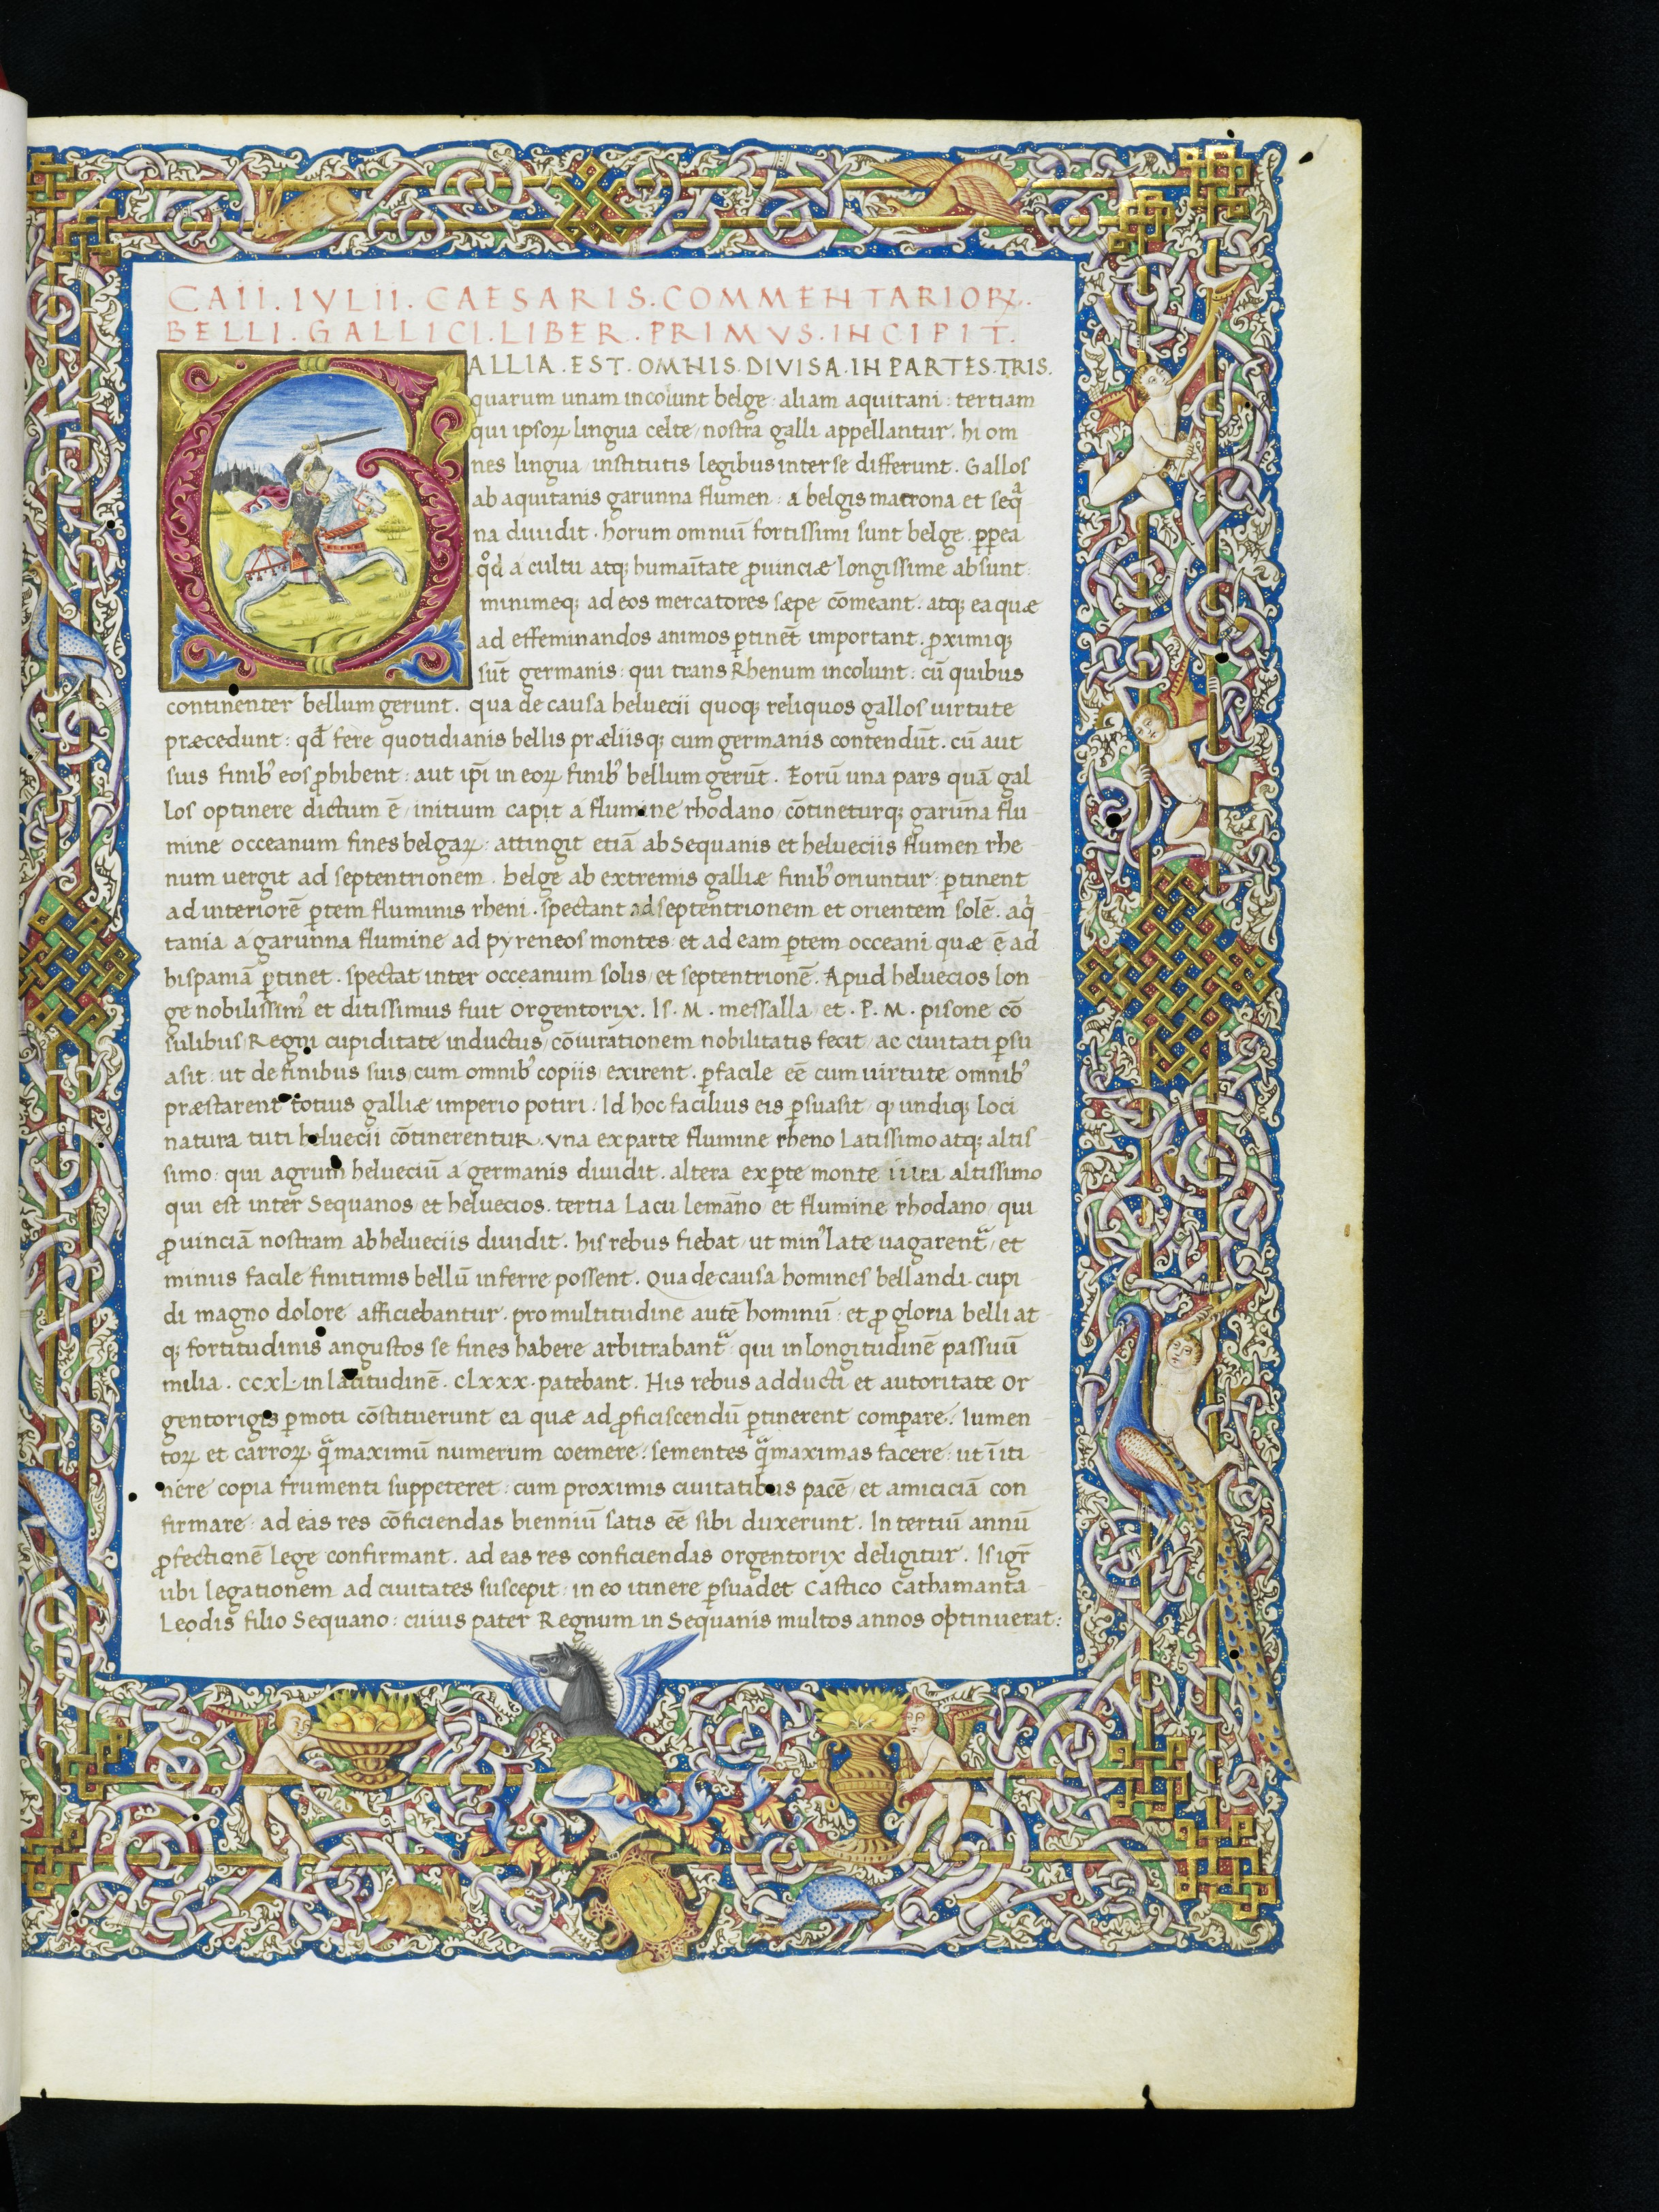 CAII . IVLII . CAESARIS . COMMENTARIOꝜ .
BELLI . GALLICI . LIBER . PRIMVS . INCIPIT .
GALLIA . EST . OMNIS . DIVISA . IN PARTES . TRIS .
quarum unam incolunt belge : aliam aquitani : tertiam
qui ipsoꝝ lingua celte / nostra galli appellantur . hi om
nes lingua / institutis legibus inter se differunt . Gallos
ab aquitanis garunna flumen : a belgis matrona et seqͣ
na diuidit . horum omniū fortissimi sunt belge . ꝓpea
qͦd a cultu atqꝫ humaītate ꝓuinciæ longissime absunt :
minimeqꝫ ad eos mercatores sæpe cōmeant . atqꝫ ea quæ
ad effeminandos animos ꝑtinēt important . ꝓximiqꝫ
sūt germanis : qui trans Rhenum incolunt : cū quibus
continenter bellum gerunt . qua de causa heluecii quoqꝫ reliquos gallos uirtute
præcedunt : qđ fere quotidianis bellis præliisqꝫ cum germanis contendūt . cū aut
suis finibꝰ eos ꝓhibent : aut ip̄i in eoꝝ finibꝰ bellum gerūt . Eorū una pars quā gal
los optinere dictum ē / initium capit a flumine rhodano / cōtineturqꝫ garūna flu
mine occeanum fines belgaꝝ : attingit etiā ab Sequanis et helueciis flumen rhe
num uergit ad septentrionem . belge ab extremis galliæ finibꝰ oriuntur : ꝑtinent
ad interiorē ꝑtem fluminis rheni . spectant ad septentrionem et orientem solē . aqͥ
tania a garunna flumine ad pyreneos montes et ad eam ꝑtem occeani quæ ē ad
hispaniā ꝑtinet . spectat inter occeanum solis / et septentrionē . Apud heluecios lon
ge nobilissimꝰ et ditissimus fuit orgentorix . Is . M . messalla / et . P . M . pisone cō
sulibus Regni cupiditate inductus / cōiurationem nobilitatis fecit / ac ciuitati ꝑsu
asit : ut de finibus suis / cum omnibꝰ copiis / exirent . ꝑfacile eē cum uirtute omnibꝰ
præstarent totius galliæ imperio potiri . Id hoc facilius eis ꝑsuasit / qꝫ undiqꝫ loci
natura tuti heluecii cōtinerentur . vna ex parte flumine rheno latissimo atqꝫ altis
simo : qui agrum helueciū a germanis diuidit . altera ex ꝑte monte iura altissimo
qui est inter Sequanos / et heluecios . tertia Lacu lemāno / et flumine rhodano / qui
ꝓuinciā nostram ab helueciis diuidit . his rebus fiebat / ut minꝰ late uagarentᷓ / et
minus facile finitimis bellū inferre possent . Qua de causa homines bellandi cupi
di magno dolore afficiebantur . pro multitudine autē hominū : et ꝓ gloria belli at
qꝫ fortitudinis angustos se fines habere arbitrabantᷓ : qui in longitudinē passuū
milia . CCXL in latitudinē . CLXXX . patebant . His rebus adducti et autoritate or
gentorigis ꝑmoti cōstituerunt ea quæ ad ꝓficiscendū ꝑtinerent comꝑare . Iumen
toꝝ et carroꝝ qͣ̄ maximū numerum coemere : sementes qͣ̄ maximas facere : ut ī iti
nere copia frumenti suppeteret : cum proximis ciuitatibus pacē / et amiciciā con
firmare : ad eas res cōficiendas bienniū satis eē sibi duxerunt . In tertiū annū
ꝓfectionē lege confirmant . ad eas res conficiendas orgentorix deligitur . Is igr̄
ubi legationem ad ciuitates suscepit : in eo itinere ꝑsuadet Castico Cathamanta
Leodis filio Sequano : cuius pater Regnum in Sequanis multos annos optinuerat :